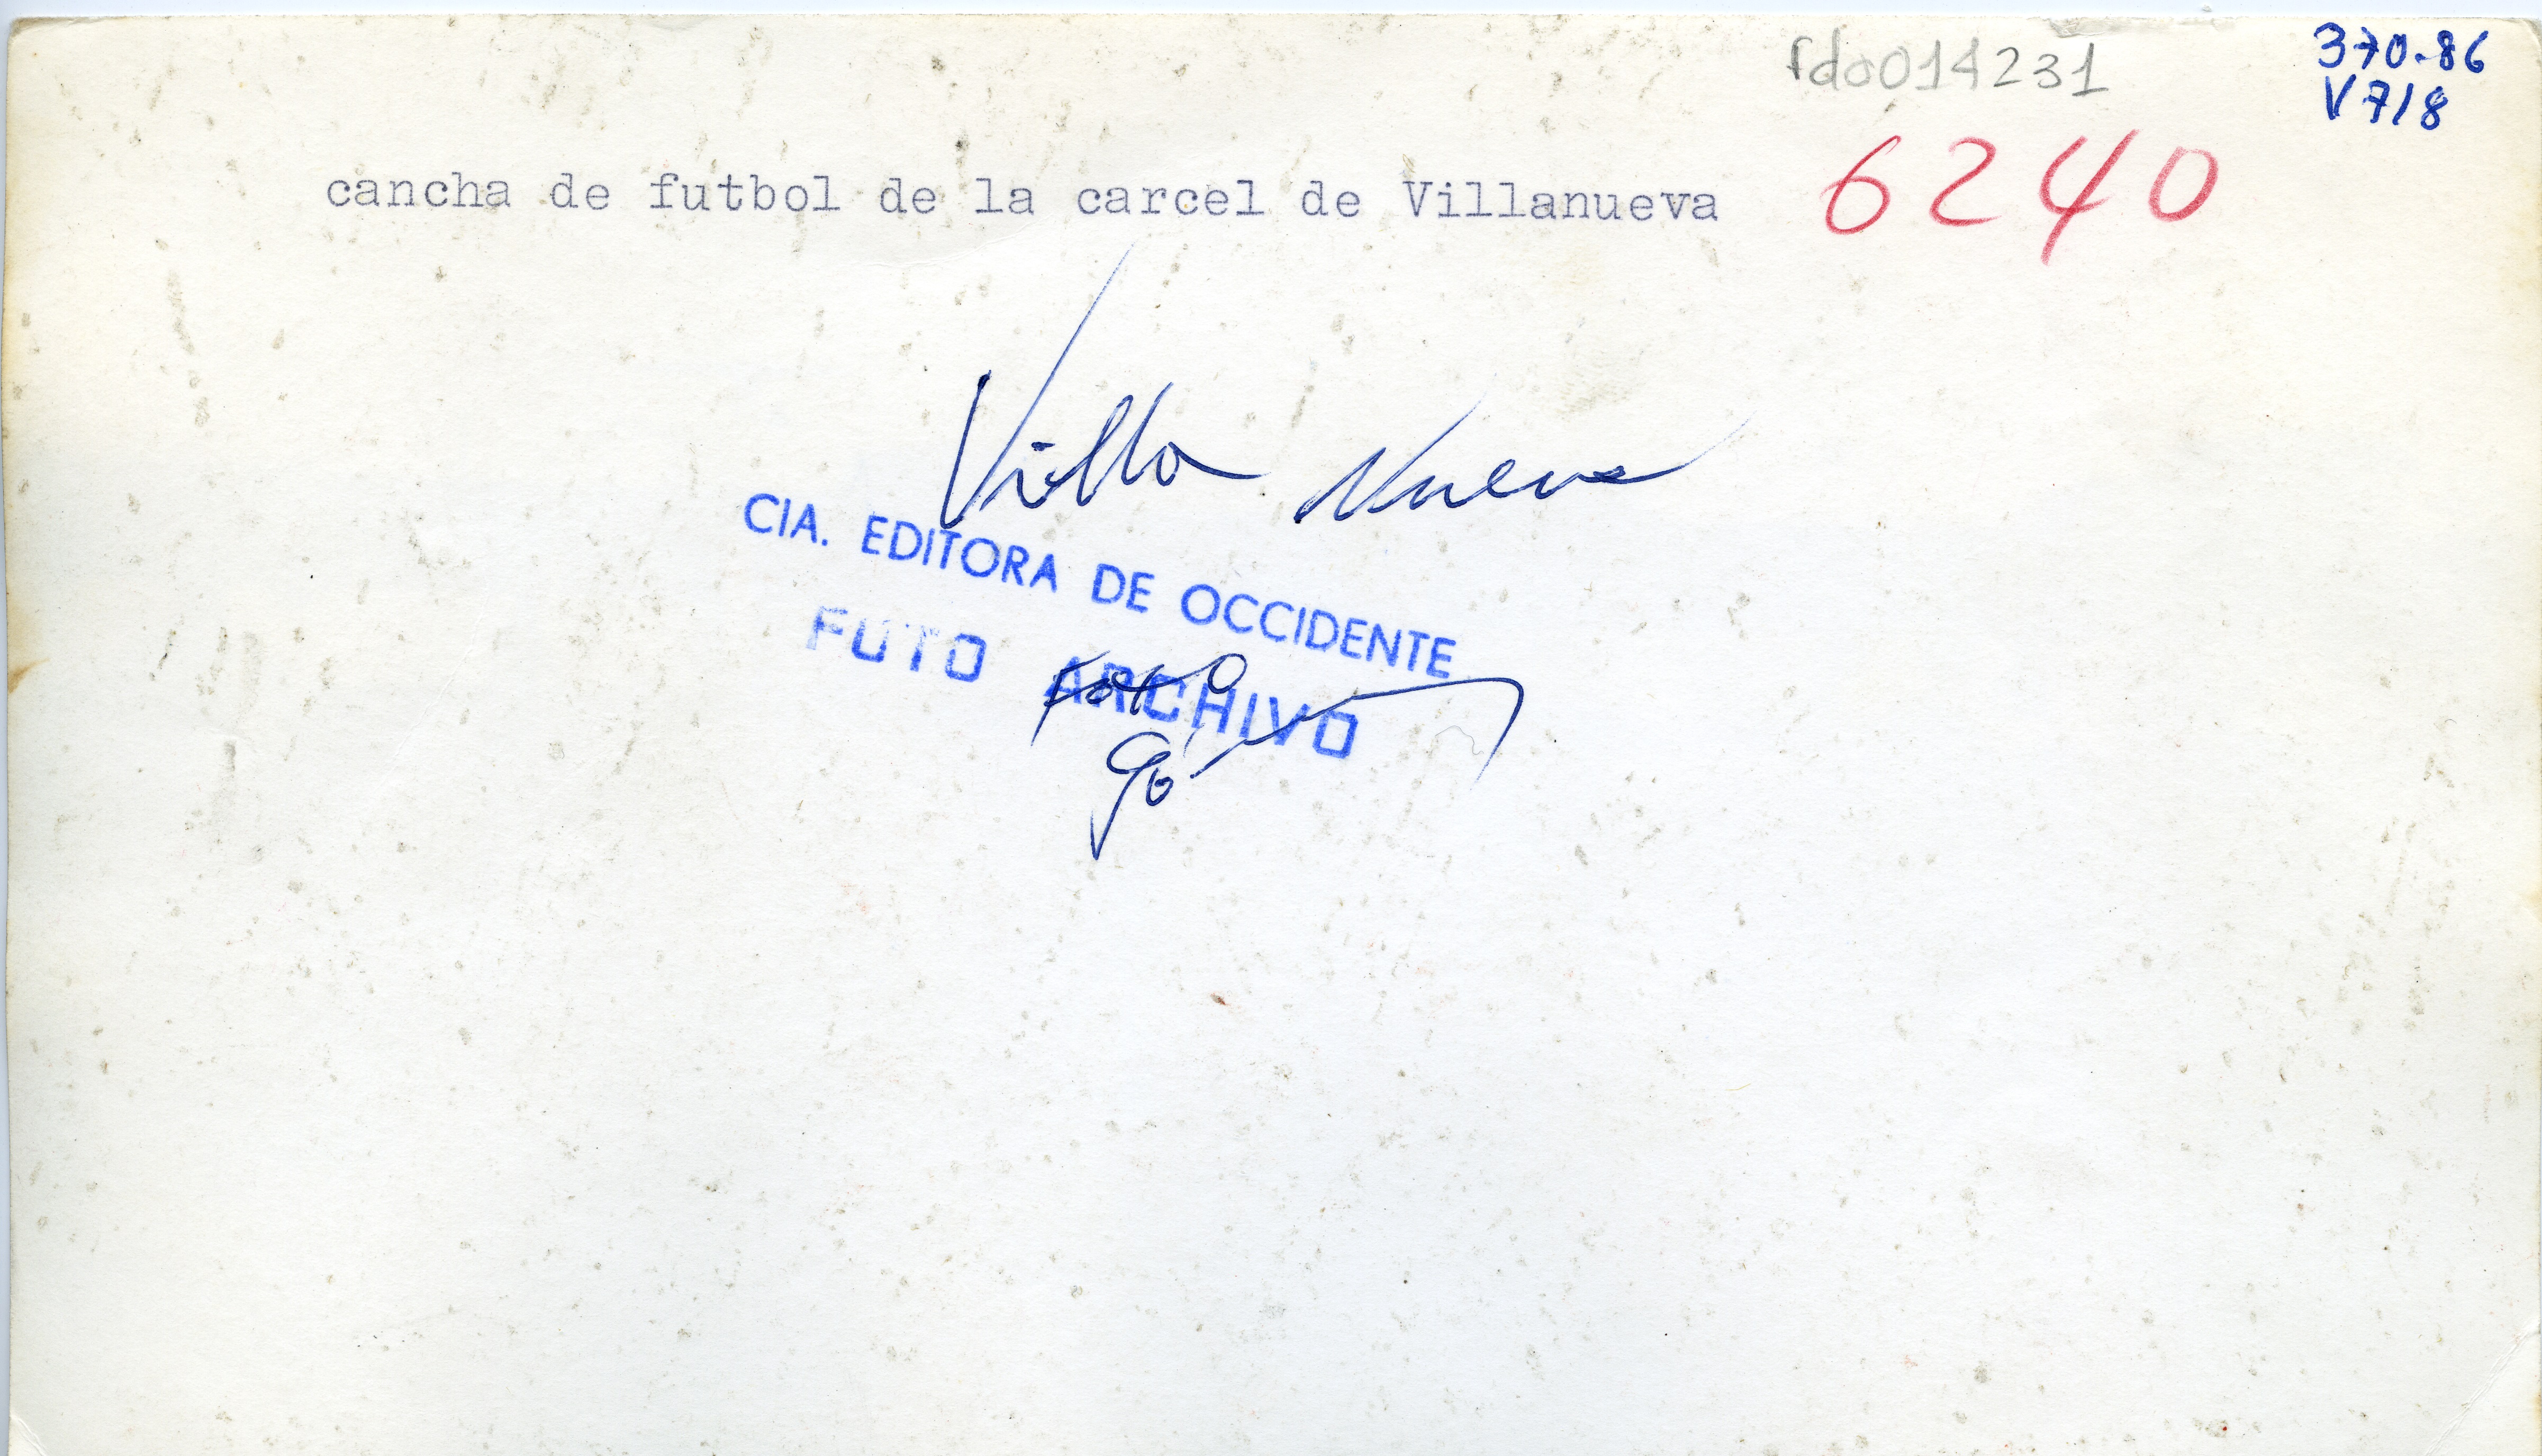 fdo014231
370.86
V718
6240
cancha de futbol de la carcel de Villanueva
Villa Nueva
CIA. EDITORA DE OCCIDENTE
FOTO ARCHIVO
foto